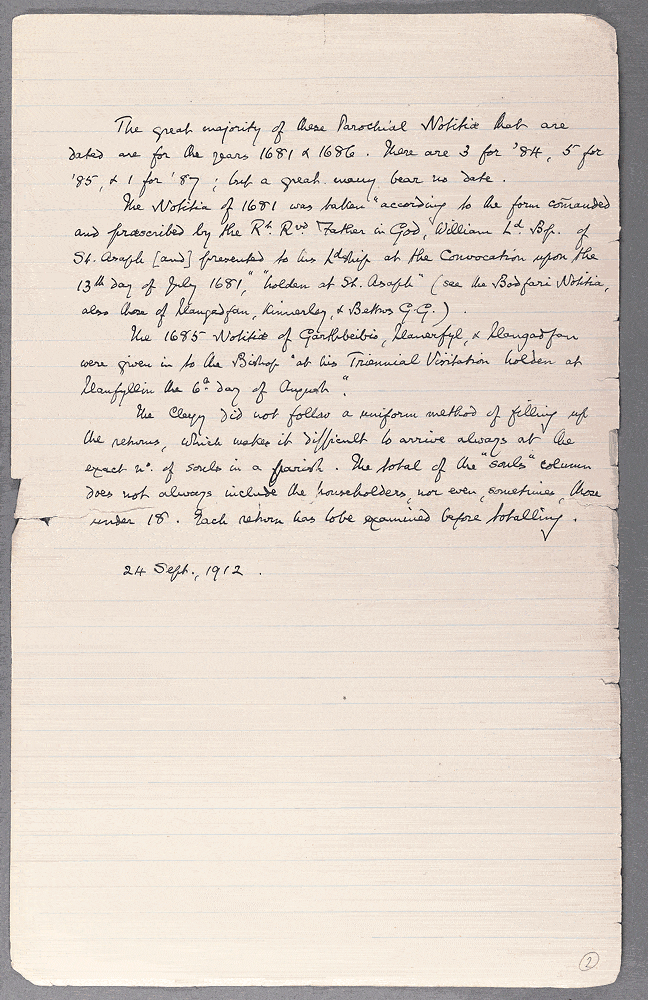 The great majority of these Parochial Notitiæ that are
dated are for the years 1681 & 1686. There are 3 for '84, 5 for
'85, & 1 for '87; but a great many bear no date.
The Notitia of 1681 was taken "according to the form com̄anded
and præscribed by the Rt. Rvd. Father in God, William Ld. Bp. of
St. Asaph [and] presented to his Ldship at the Convocation upon the
13th day of July 1681," "holden at St. Asaph" (see the Bodfari Notitia,
also those of Llangadfan, Kinnerley, & Bettws G.G.).
The 1685 Notitiæ of Garthbeibio, Llanerfyl, & Llangadfan
were given in to the Bishop "at his Triennial Visitation holden at
Llanfyllin the 6th day of August".
The Clergy did not follow a uniform method of filling up
the returns, which makes it difficult to arrive always at the
exact no. of souls in a parish. The total of the "souls" column
does not always include the householders, nor even, sometimes, those
under 18. Each return has to be examined before totalling.
24 Sept., 1912.
2